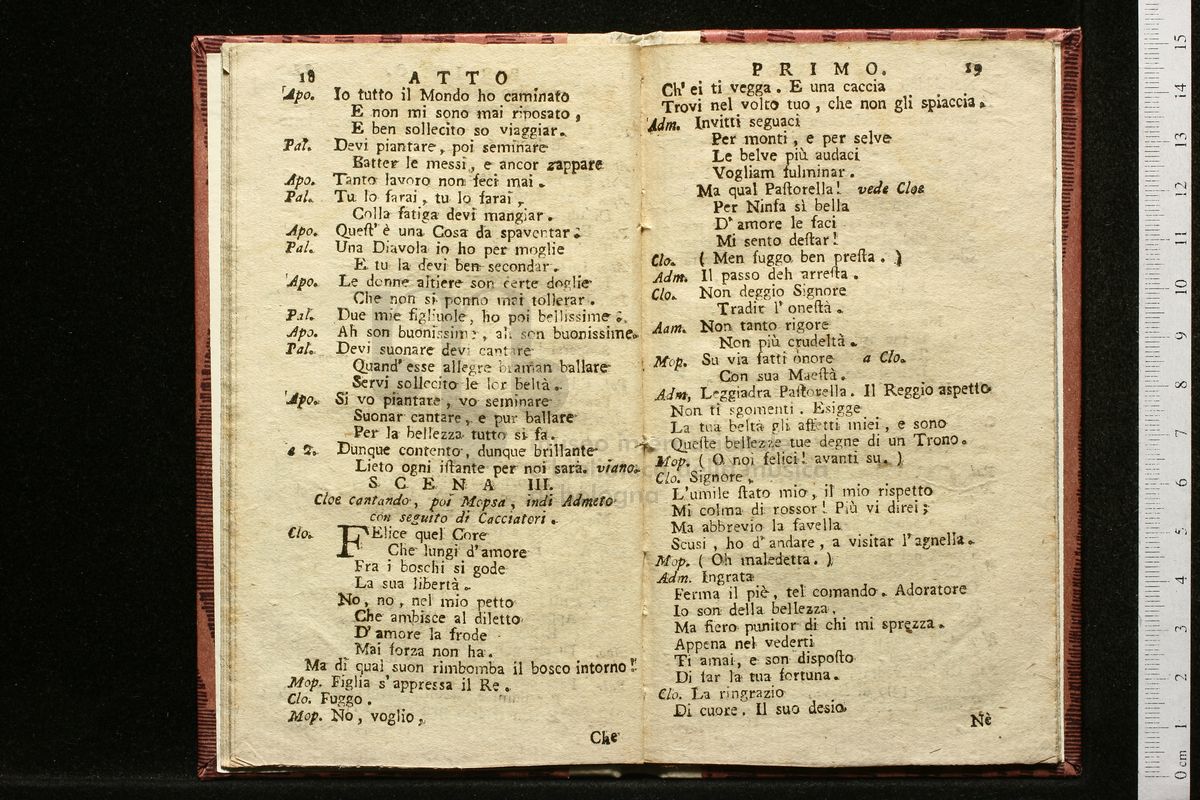 18 ATTO
Apo. Io tutto il Mondo ho caminato
E non mi sono mai riposato,
E ben sollecito so viaggiar.
Pal. Devi piantare, poi seminare
Batter le messi, e ancor zappare
Apo. Tanto lavoro non feci mai.
Pal. Tu lo farai, tu lo farai,
Colla fatiga devi mangiar.
Apo. Quest' è una Cosa da spaventar.
Pal. Una Diavola io ho per moglie
E tu la devi ben secondar.
Apo. Le donne altiere son certe doglie
Che non si ponno mai tollerar.
Pal. Due mie figliuole, ho poi bellissime.
Apo. Ah son buonissime, ah son buonissime.
Pal. Devi suonare devi cantare
Quand' esse allegre braman ballare
Servi sollecito le lor beltà.
Apo. Si vo piantare, vo seminare
Suonar cantare, e pur ballare
Per la bellezza tutto si fa.
a 2. Dunque contento, dunque brillante
Lieto ogni istante per noi sarà. viano.
SCENA III.
Cloe cantando, poi Mopsa, indi Admeto
con seguito di Cacciatori.
Clo. FElice quel Core
Che lungi d'amore
Fra i boschi si gode
La sua libertà.
No, no, nel mio petto
Che ambisce al diletto
D'amore la frode
Mai forza non ha.
Ma di qual suon rimbomba il bosco intorno!
Mop. Figlia s'appressa il Re.
Clo. Fuggo.
Mop. No, voglio,
Che
PRIMO. 19
Ch' ei ti vegga. E una caccia
Trovi nel volto tuo, che non gli spiaccia.
Adm. Invitti seguaci
Per monti, e per selve
Le belve più audaci
Vogliam fulminar.
Ma qual Pastorella! vede Cloe
Per Ninfa sì bella
D'amore le faci
Mi sento destar!
Clo. ( Men fuggo ben presta. )
Adm. Il passo deh arresta.
Clo. Non deggio Signore
Tradir l'onestà.
Aam. Non tanto rigore
Non più crudeltà.
Mop. Su via fatti onore a Clo.
Con sua Maestà.
Adm, Leggiadra Pastorella. Il Reggio aspetto
Non ti sgomenti. Esigge
La tua beltà gli affetti miei, e sono
Queste bellezze tue degne di un Trono.
Mop. ( O noi felici! avanti su. )
Clo. Signore,
L'umile stato mio, il mio rispetto
Mi colma di rossor! Più vi direi;
Ma abbrevio la favella
Scusi, ho d'andare, a visitar l'agnella.
Mop. ( Oh maledetta. )
Adm. Ingrata
Ferma il piè, tel comando. Adoratore
Io son della bellezza,
Ma fiero punitor di chi mi sprezza.
Appena nel vederti
Ti amai, e son disposto
Di far la tua fortuna.
Clo. La ringrazio
Di cuore. Il suo desio
Nè
0 cm 1 2 3 4 5 6 7 8 9 10 11 12 13 14 15